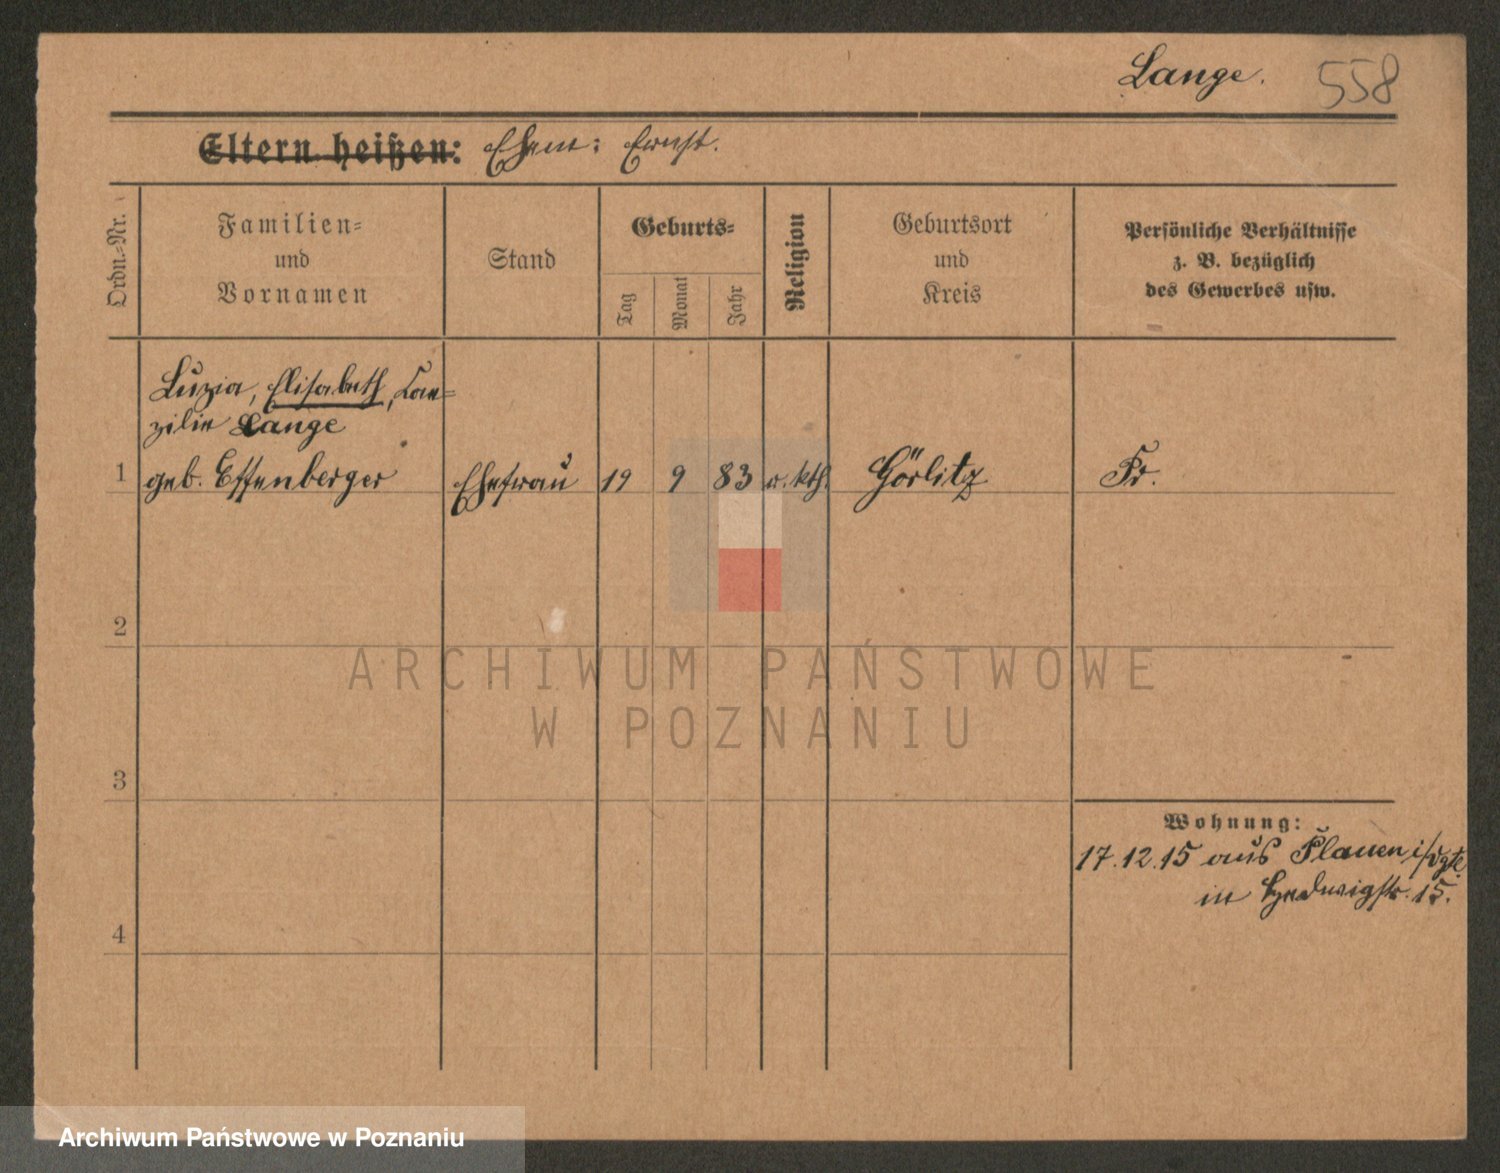 Lange. 558
Eltern heißen: Ehem: Ernst.
Ordn.-Nr.
Familien-
und
Vornamen
Stand
Geburts-
Tag
Monat
Jahr
Religion
Geburtsort
und
Kreis
Persönliche Verhältnisse
z. B. bezüglich
des Gewerbes usw.
Luzia, Elisabeth, Cae-
zilie Lange
1 geb. Effenberger Ehefrau 19 9 83 r. kth. Görlitz Fr.
2
3
4
Wohnung:
17.12.15 aus Plauen i/Vgtl.
in Hedwigstr. 15.
ARCHIWUM PAŃSTWOWE
W POZNANIU
Archiwum Państwowe w Poznaniu